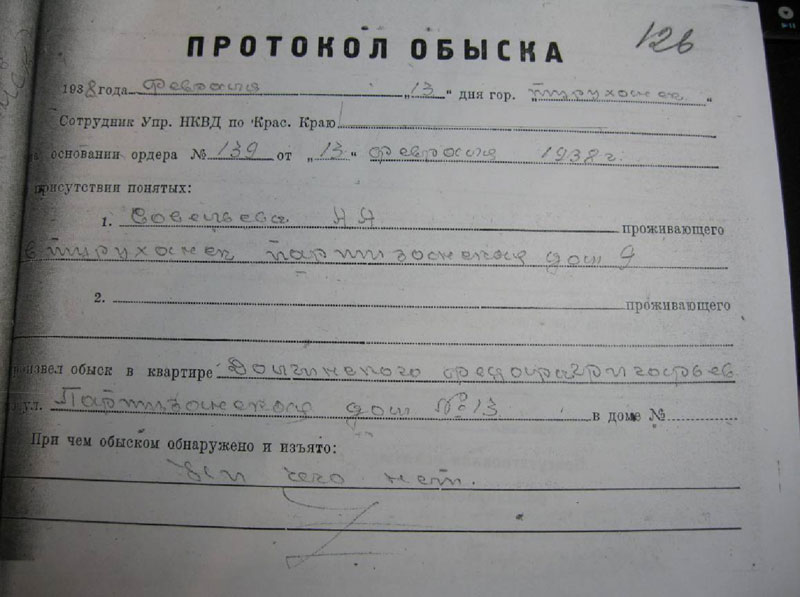 126
ПРОТОКОЛ ОБЫСКА
1938 года февраля „13“ дня гор. „Турухонск“
Сотрудник Упр. НКВД по Крас. Краю
основании ордера № 139 от „13“ февроля 1938 г.
присутствия понятых:
1. Совельева Н Я проживающего
в Турухонск Портизонская дом 9
2. проживающего
произвел обыск в квартире Долгинского
ул. Портизонская дом № 13 в доме №
При чем обыском обнаружено и изъято:
чего нет.